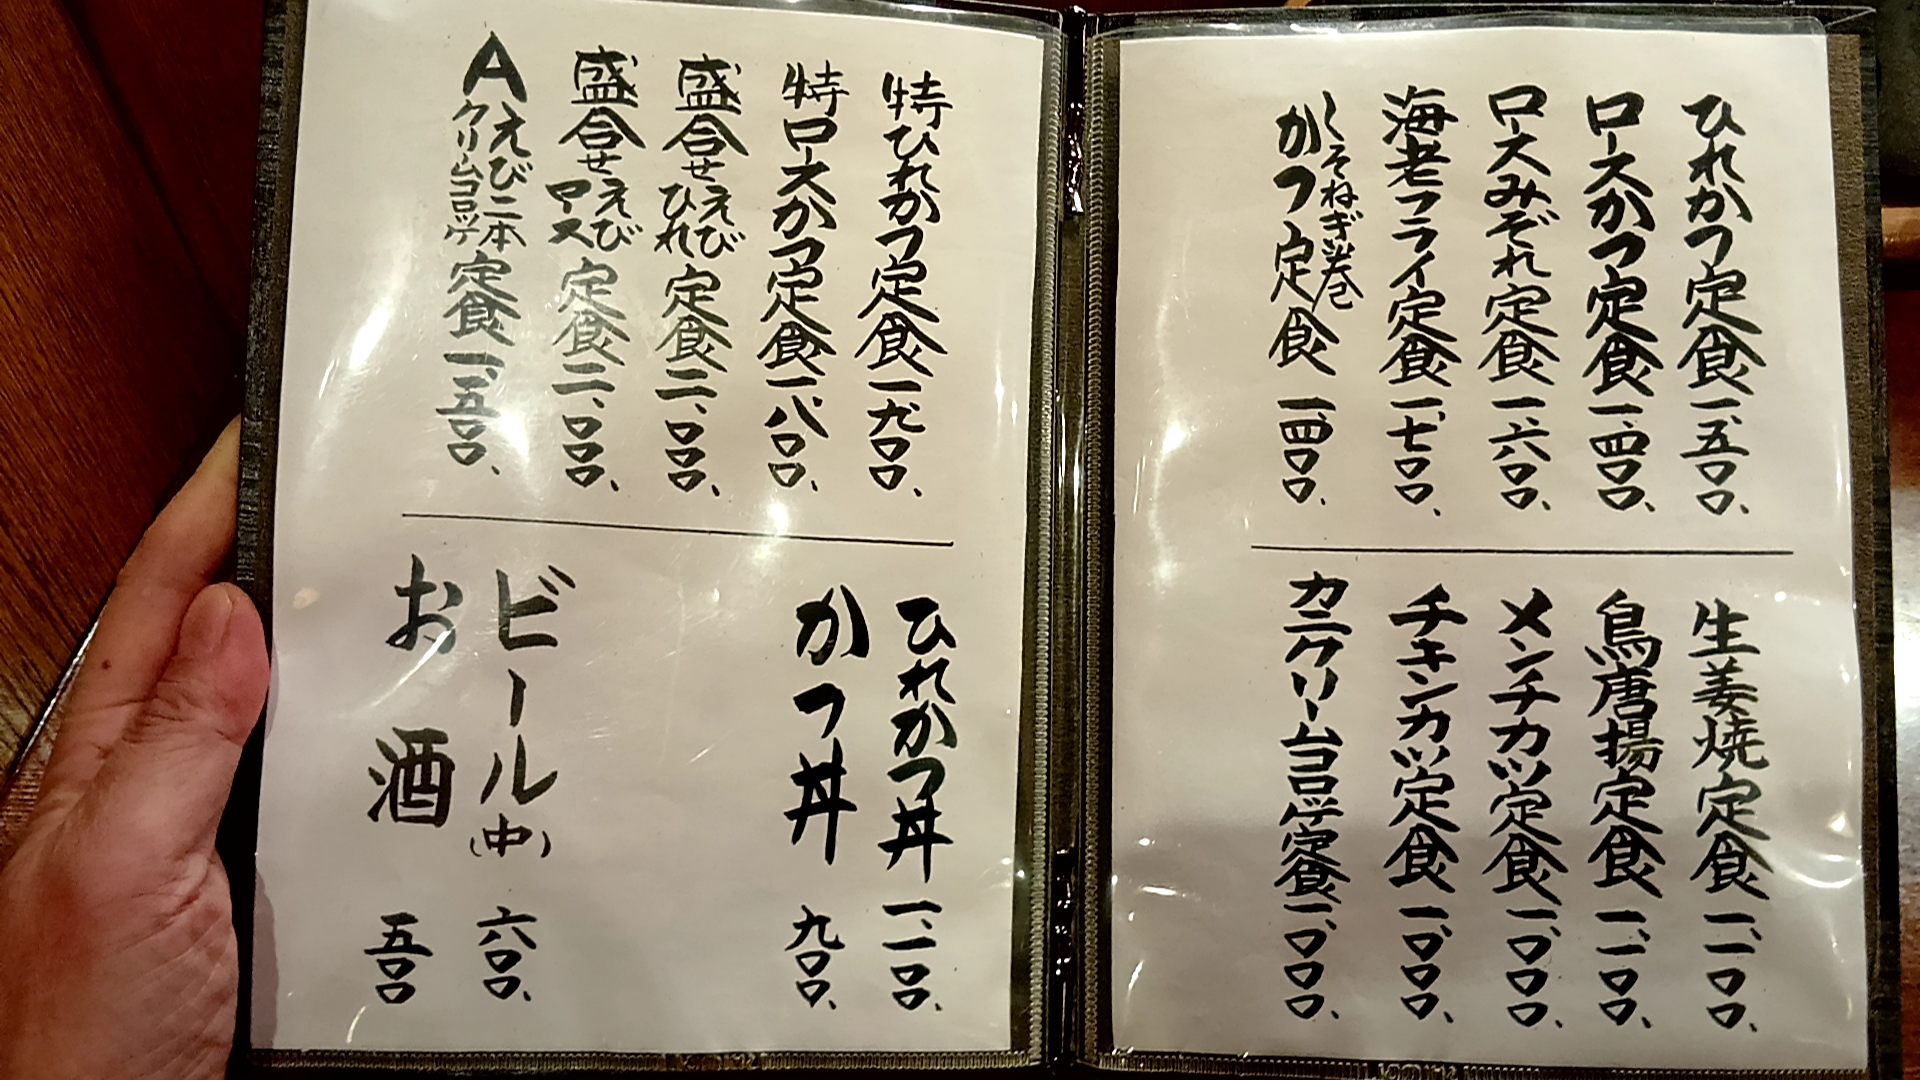 ひれかつ定食 一、五〇〇、
ロースかつ定食 一、四〇〇、
ロースみぞれ定食 一、六〇〇、
海老フライ定食 一、七〇〇、
しそねぎ巻かつ定食 一、四〇〇、
生姜焼定食 一、一〇〇、
鳥唐揚定食 一、一〇〇、
メンチカツ定食 一、〇〇〇、
チキンカツ定食 一、〇〇〇、
カニクリームコロッケ定食 一、〇〇〇、
特ひれかつ定食 一、九〇〇、
特ロースかつ定食 一、八〇〇、
盛合せえびひれ定食 二、〇〇〇、
盛合せえびロース定食 二、〇〇〇、
Aえび二本クリームコロッケ定食 一、五〇〇、
ひれかつ丼 一、一〇〇、
かつ丼 九〇〇、
ビール(中) 六〇〇、
お酒 五〇〇